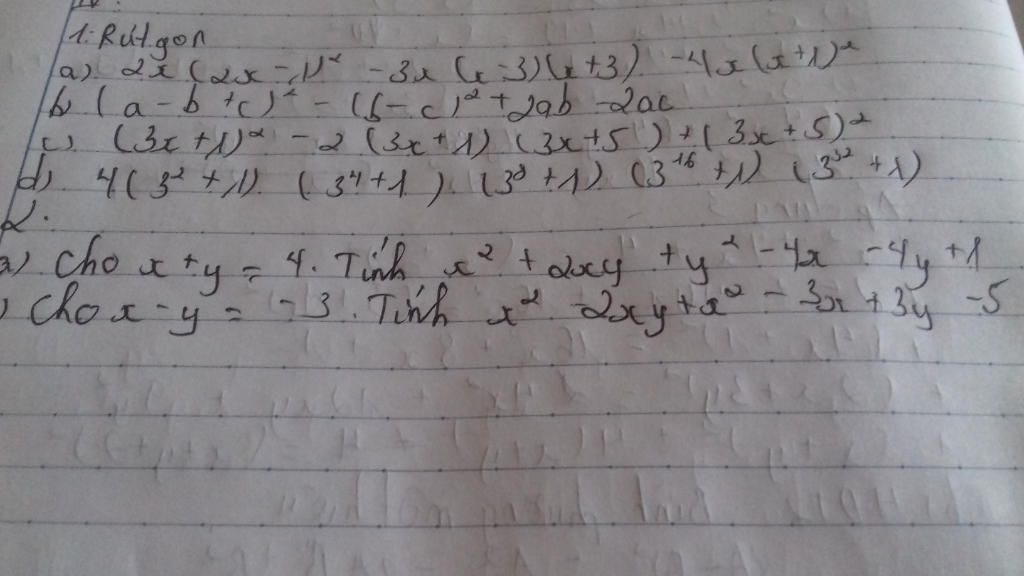 1. Rút gọn
a) 2x (2x - 1)² - 3x (x - 3)(x + 3) - 4x (x + 1)²
b) (a - b + c)² - (b - c)² + 2ab - 2ac
c) (3x + 1)² - 2 (3x + 1) (3x + 5) + (3x + 5)²
d) 4 (3² + 1) . (3⁴ + 1) . (3⁸ + 1) (3¹⁶ + 1) (3³² + 1)
2.
a) Cho x + y = 4. Tính x² + 2xy + y² - 4x - 4y + 1
) Cho x - y = - 3. Tính x² - 2xy + x² - 3x + 3y - 5